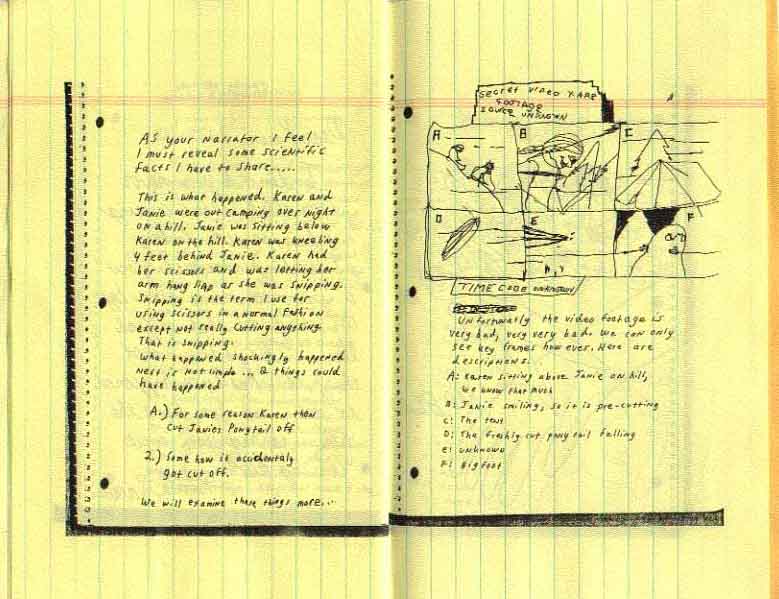 As your narrator I feel
I must reveal some scientific
facts I have to share.....
This is what happened. Karen and
Janie were out camping over night
on a hill. Janie was sitting below
Karen on the hill. Karen was kneeling
4 feet behind Janie. Karen had
her scissors and was letting her
arm hang as she was snipping.
Snipping is the term I use for
using scissors in a normal fashion
except not really cutting anything
That is snipping.
What happened shockingly happened
next is not simple ... 2 things could
have happened
A.) For some reason Karen then
cut Janies Ponytail off
2.) Some how it accidentaly
got cut off.
We will examine these things more...
Secret video tape
footage
source unknown
A
B
C
D
E
F
TIME CODE unknown
Unfortunatly the video footage is
very bad, very very bad. We can only
see key frames how ever. Here are
descriptions.
A: Karen sitting above Janie on hill,
we know that much
B: Janie smiling, so it is pre-cutting
C: The tent
D: The freshly cut pony tail falling
E: unknown
F: Bigfoot